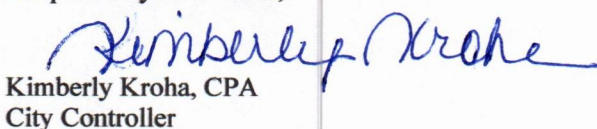 Kimberly Kroha
Kimberly Kroha, CPA
City Controller